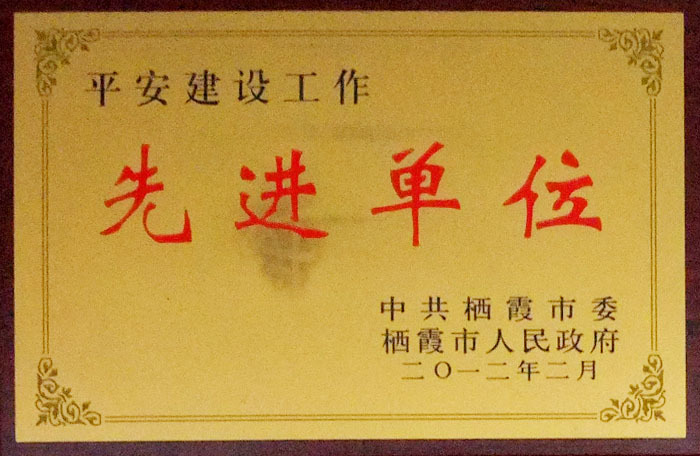 平安建设工作
先进单位
中共栖霞市委
栖霞市人民政府
二〇一二年二月